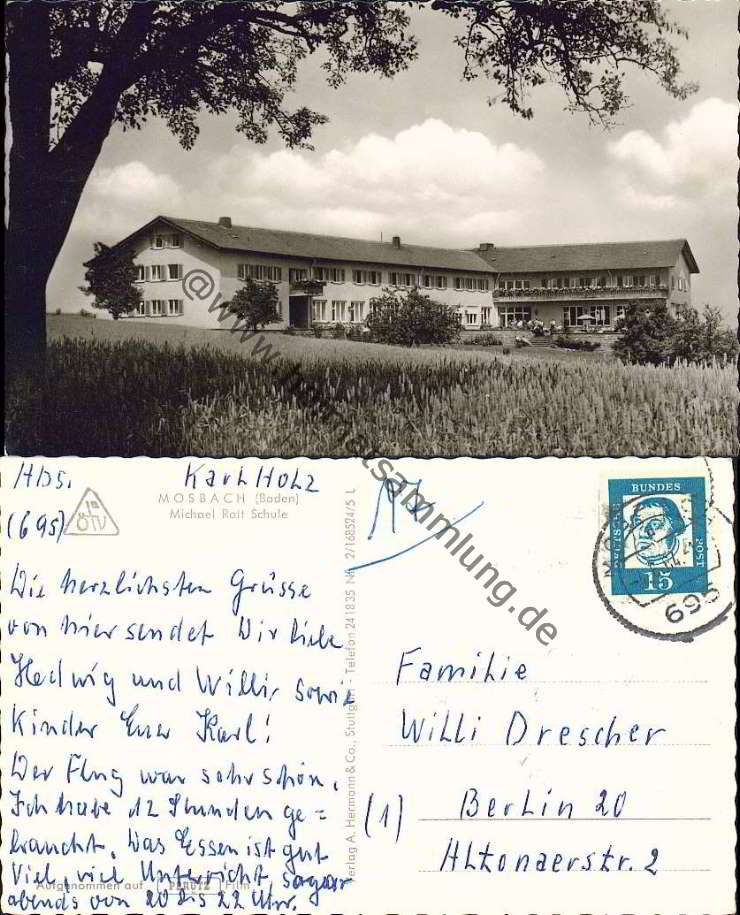 @www.heimatsammlung.de
Abs. Karl Holz
MOSBACH (Baden)
Michael Rott Schule
(695)
ÖTV
Die herzlichsten Grüsse
von hier sendet Dir liebe
Hedwig und Willi, sowie
Kinder Euer Karl!
Der Flug war sehr schön.
Ich habe 12 Stunden ge=
braucht. Das Essen ist gut
Viel, viel Unterricht sogar
abends von 20 bis 22 Uhr.
Aufgenommen auf PERUTZ Film
Verlag A. Hermann & Co., Stuttgart - Telefon 241835 Nr. 2/168524/5 L
DEUTSCHE
BUNDES
POST
15
695
Familie
Willi Drescher
(1) Berlin 20
Altonaerstr. 2